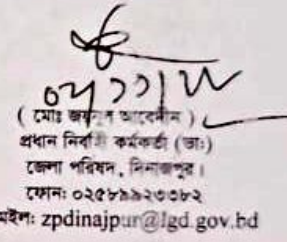 ( মোঃ জয়নুল আবেদীন )
প্রধান নির্বাহী কর্মকর্তা (ভাঃ)
জেলা পরিষদ, দিনাজপুর।
ফোন: ০২৫৮৯৯২৩৩৮২
মইল: zpdinajpur@lgd.gov.bd